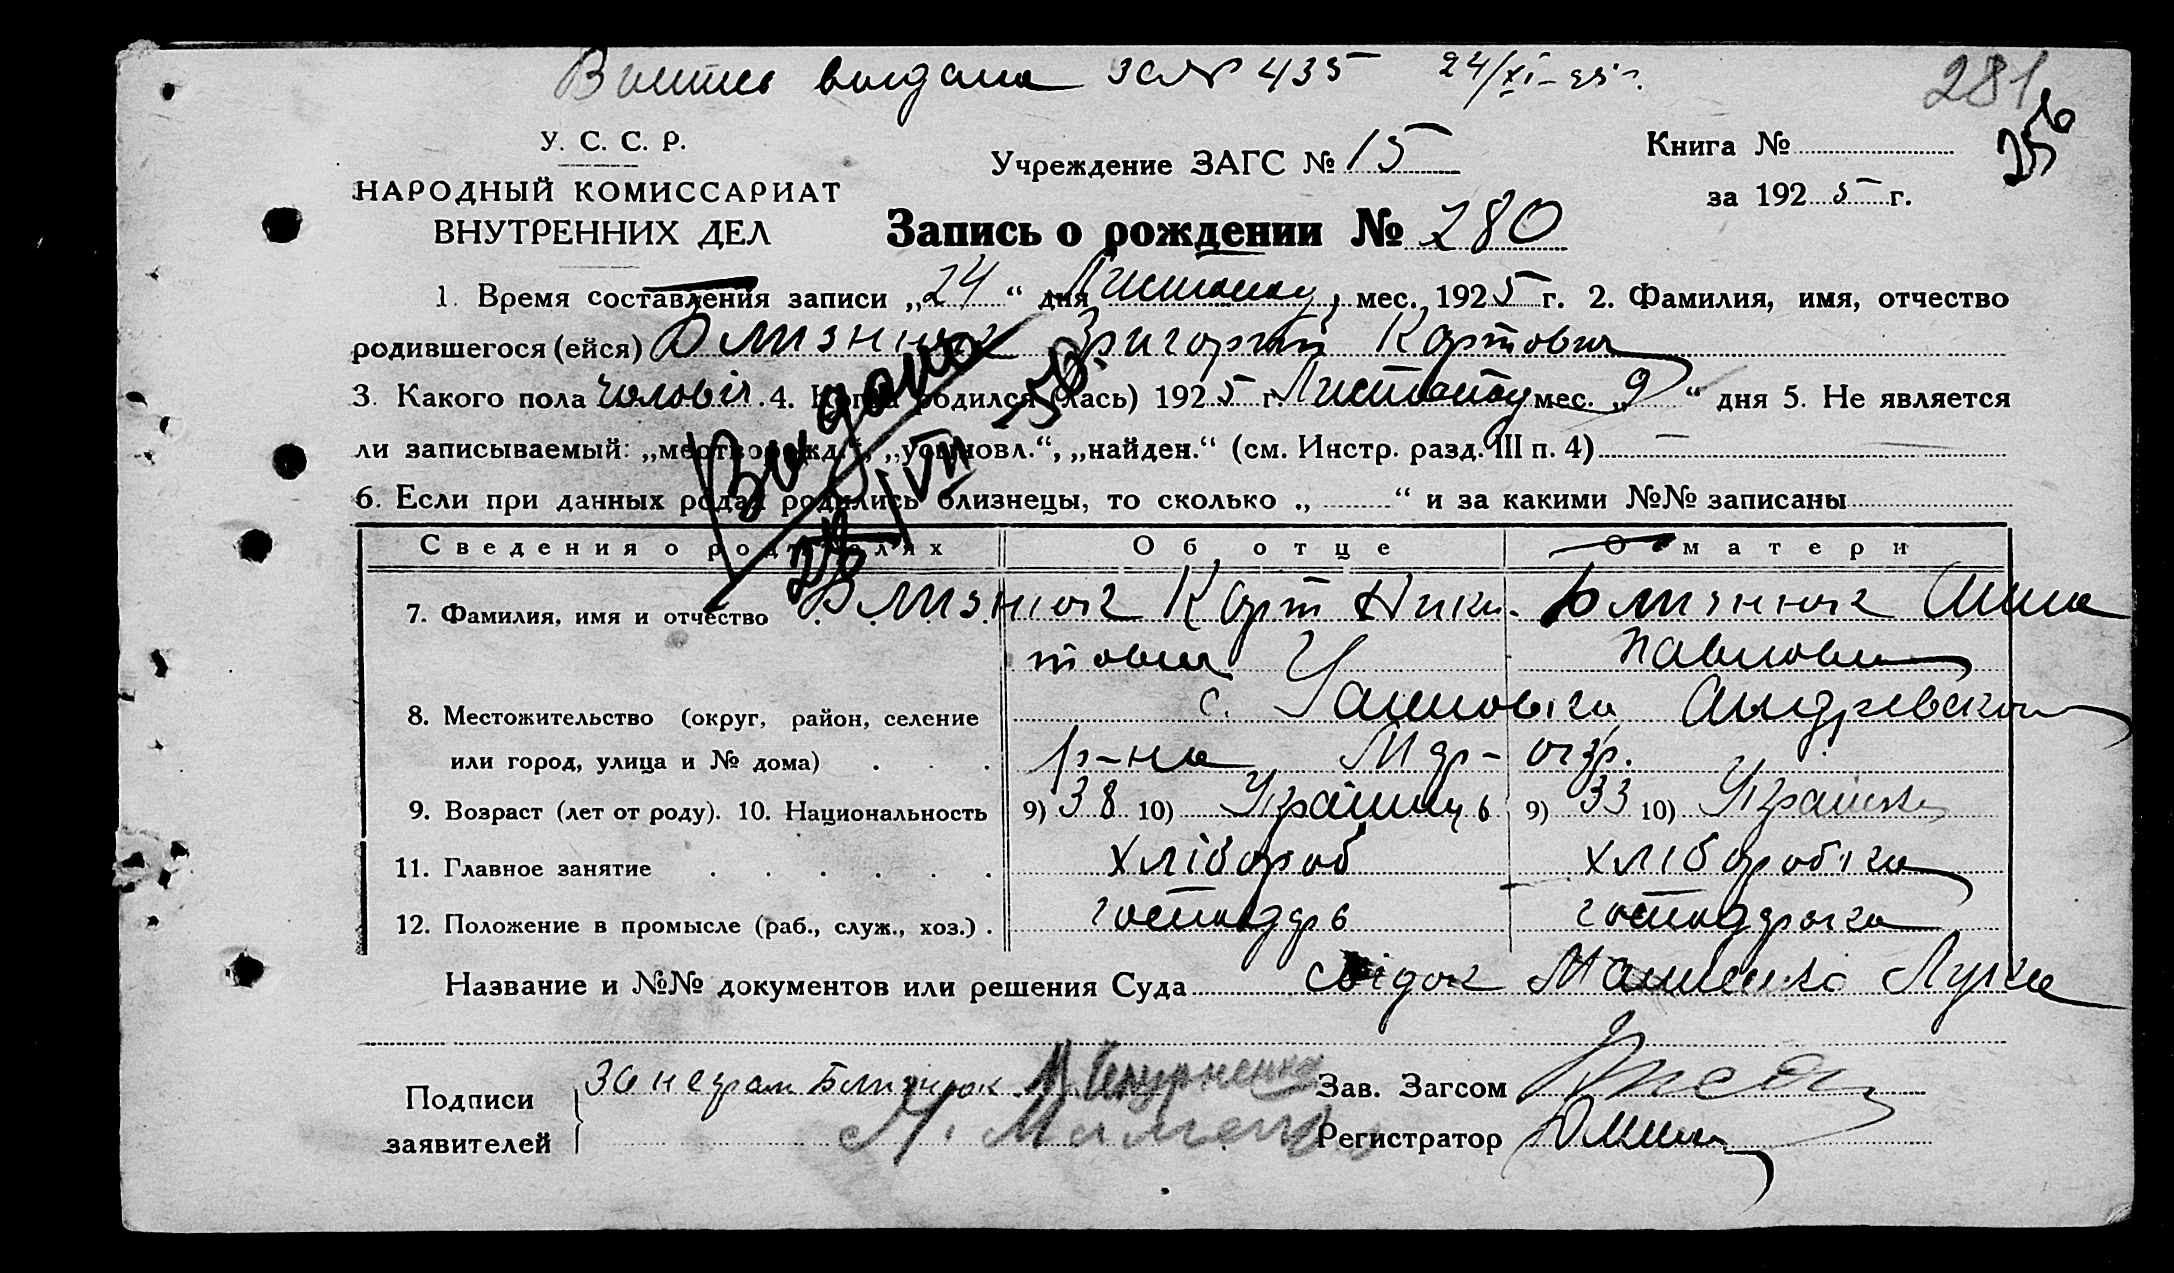 выдана за № 435 24/XI-35 г.
281
256
У. С. С. Р.
НАРОДНЫЙ КОМИССАРИАТ
ВНУТРЕННИХ ДЕЛ
Учреждение ЗАГС № 15
Книга №
за 1925 г.
Запись о рождении № 280
1. Время составления записи „24“ дня Листопаду мес., 1925 г. 2. Фамилия, имя, отчество
родившегося (ейся) Близнюк Григорий Карпович
3. Какого пола чоловіч. 4. Когда родился (лась) 1925 г. Листопаду мес. „9“ дня 5. Не является
ли записываемый: „мертворожд.“, „усыновл.“, „найден.“ (см. Инстр. разд. III п. 4) —
6. Если при данных родах родились близнецы, то сколько „ “ и за какими №№ записаны
Видано
26/VII 50 р.
Сведения о родителях Об отце О матери
7. Фамилия, имя и отчество Близнюк Карп Ники- Близнюк Анна
тович Павловна
8. Местожительство (округ, район, селение с. Андрієвского
или город, улица и № дома) р-на окр.
9. Возраст (лет от роду). 10. Национальность 9) 38 10) Українець 9) 33 10) Українка
11. Главное занятие хлібороб хліборобка
12. Положение в промысле (раб., служ., хоз.) господарь господарка
Название и №№ документов или решения Суда свідок Лука
Подписи
заявителей
За неграм Близнюк
Зав. Загсом
Регистратор